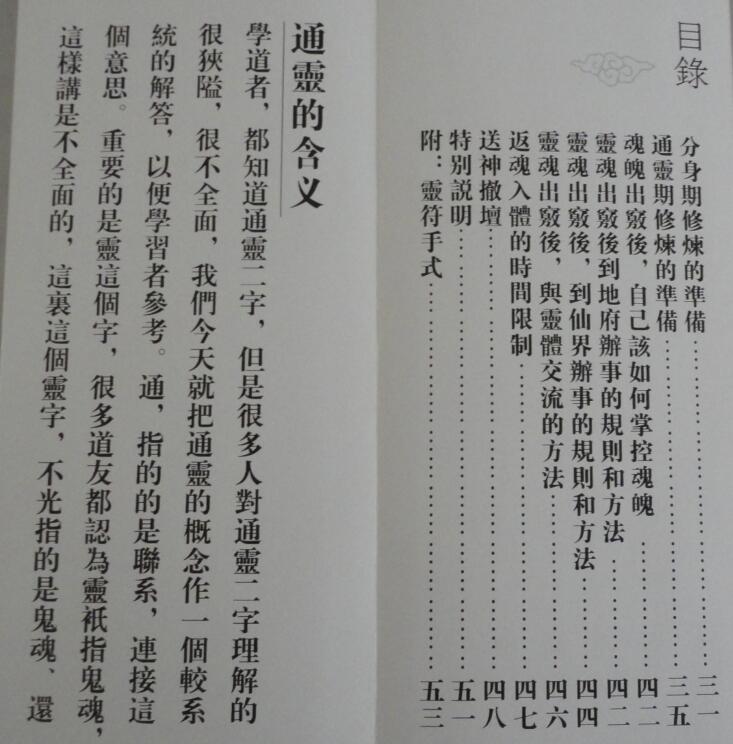 目錄
分身期修煉的準備……三一
通靈期修煉的準備……三五
魂魄出竅後，自己該如何掌控魂魄……四二
靈魂出竅後到地府辦事的規則和方法……四二
靈魂出竅後，到仙界辦事的規則和方法……四四
靈魂出竅後，與靈體交流的方法……四六
返魂入體的時間限制……四七
送神撤壇……四八
特別説明……五一
附：靈符手式……五三
通靈的含义
學道者，都知道通靈二字，但是很多人對通靈二字理解的
很狹隘，很不全面，我們今天就把通靈的概念作一個較系
統的解答，以便學習者參考。通，指的的是聯系，連接這
個意思。重要的是靈這個字，很多道友都認為靈衹指鬼魂，
這樣講是不全面的，這裏這個靈字，不光指的是鬼魂、還